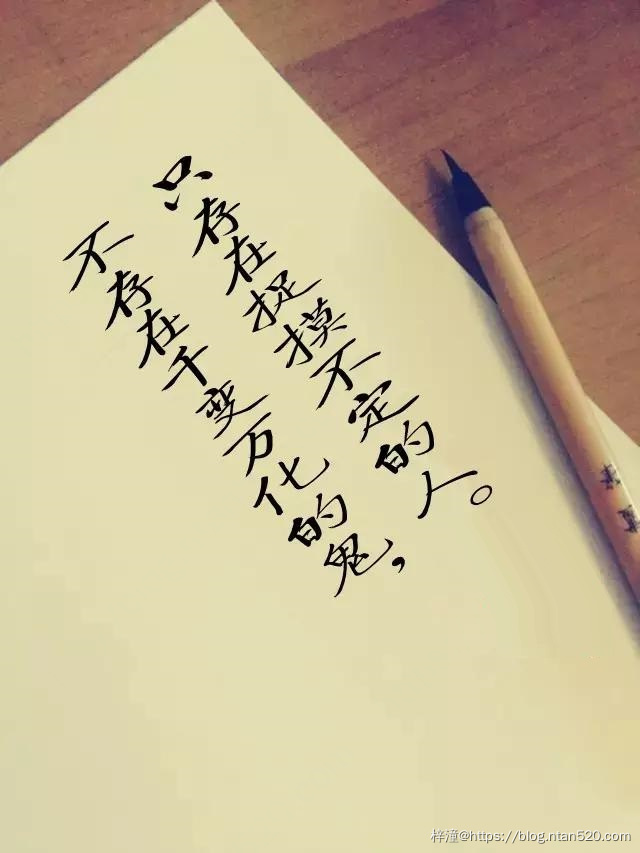 不存在千变万化的鬼，
只存在捉摸不定的人。
梓潼@https://blog.ntan520.com